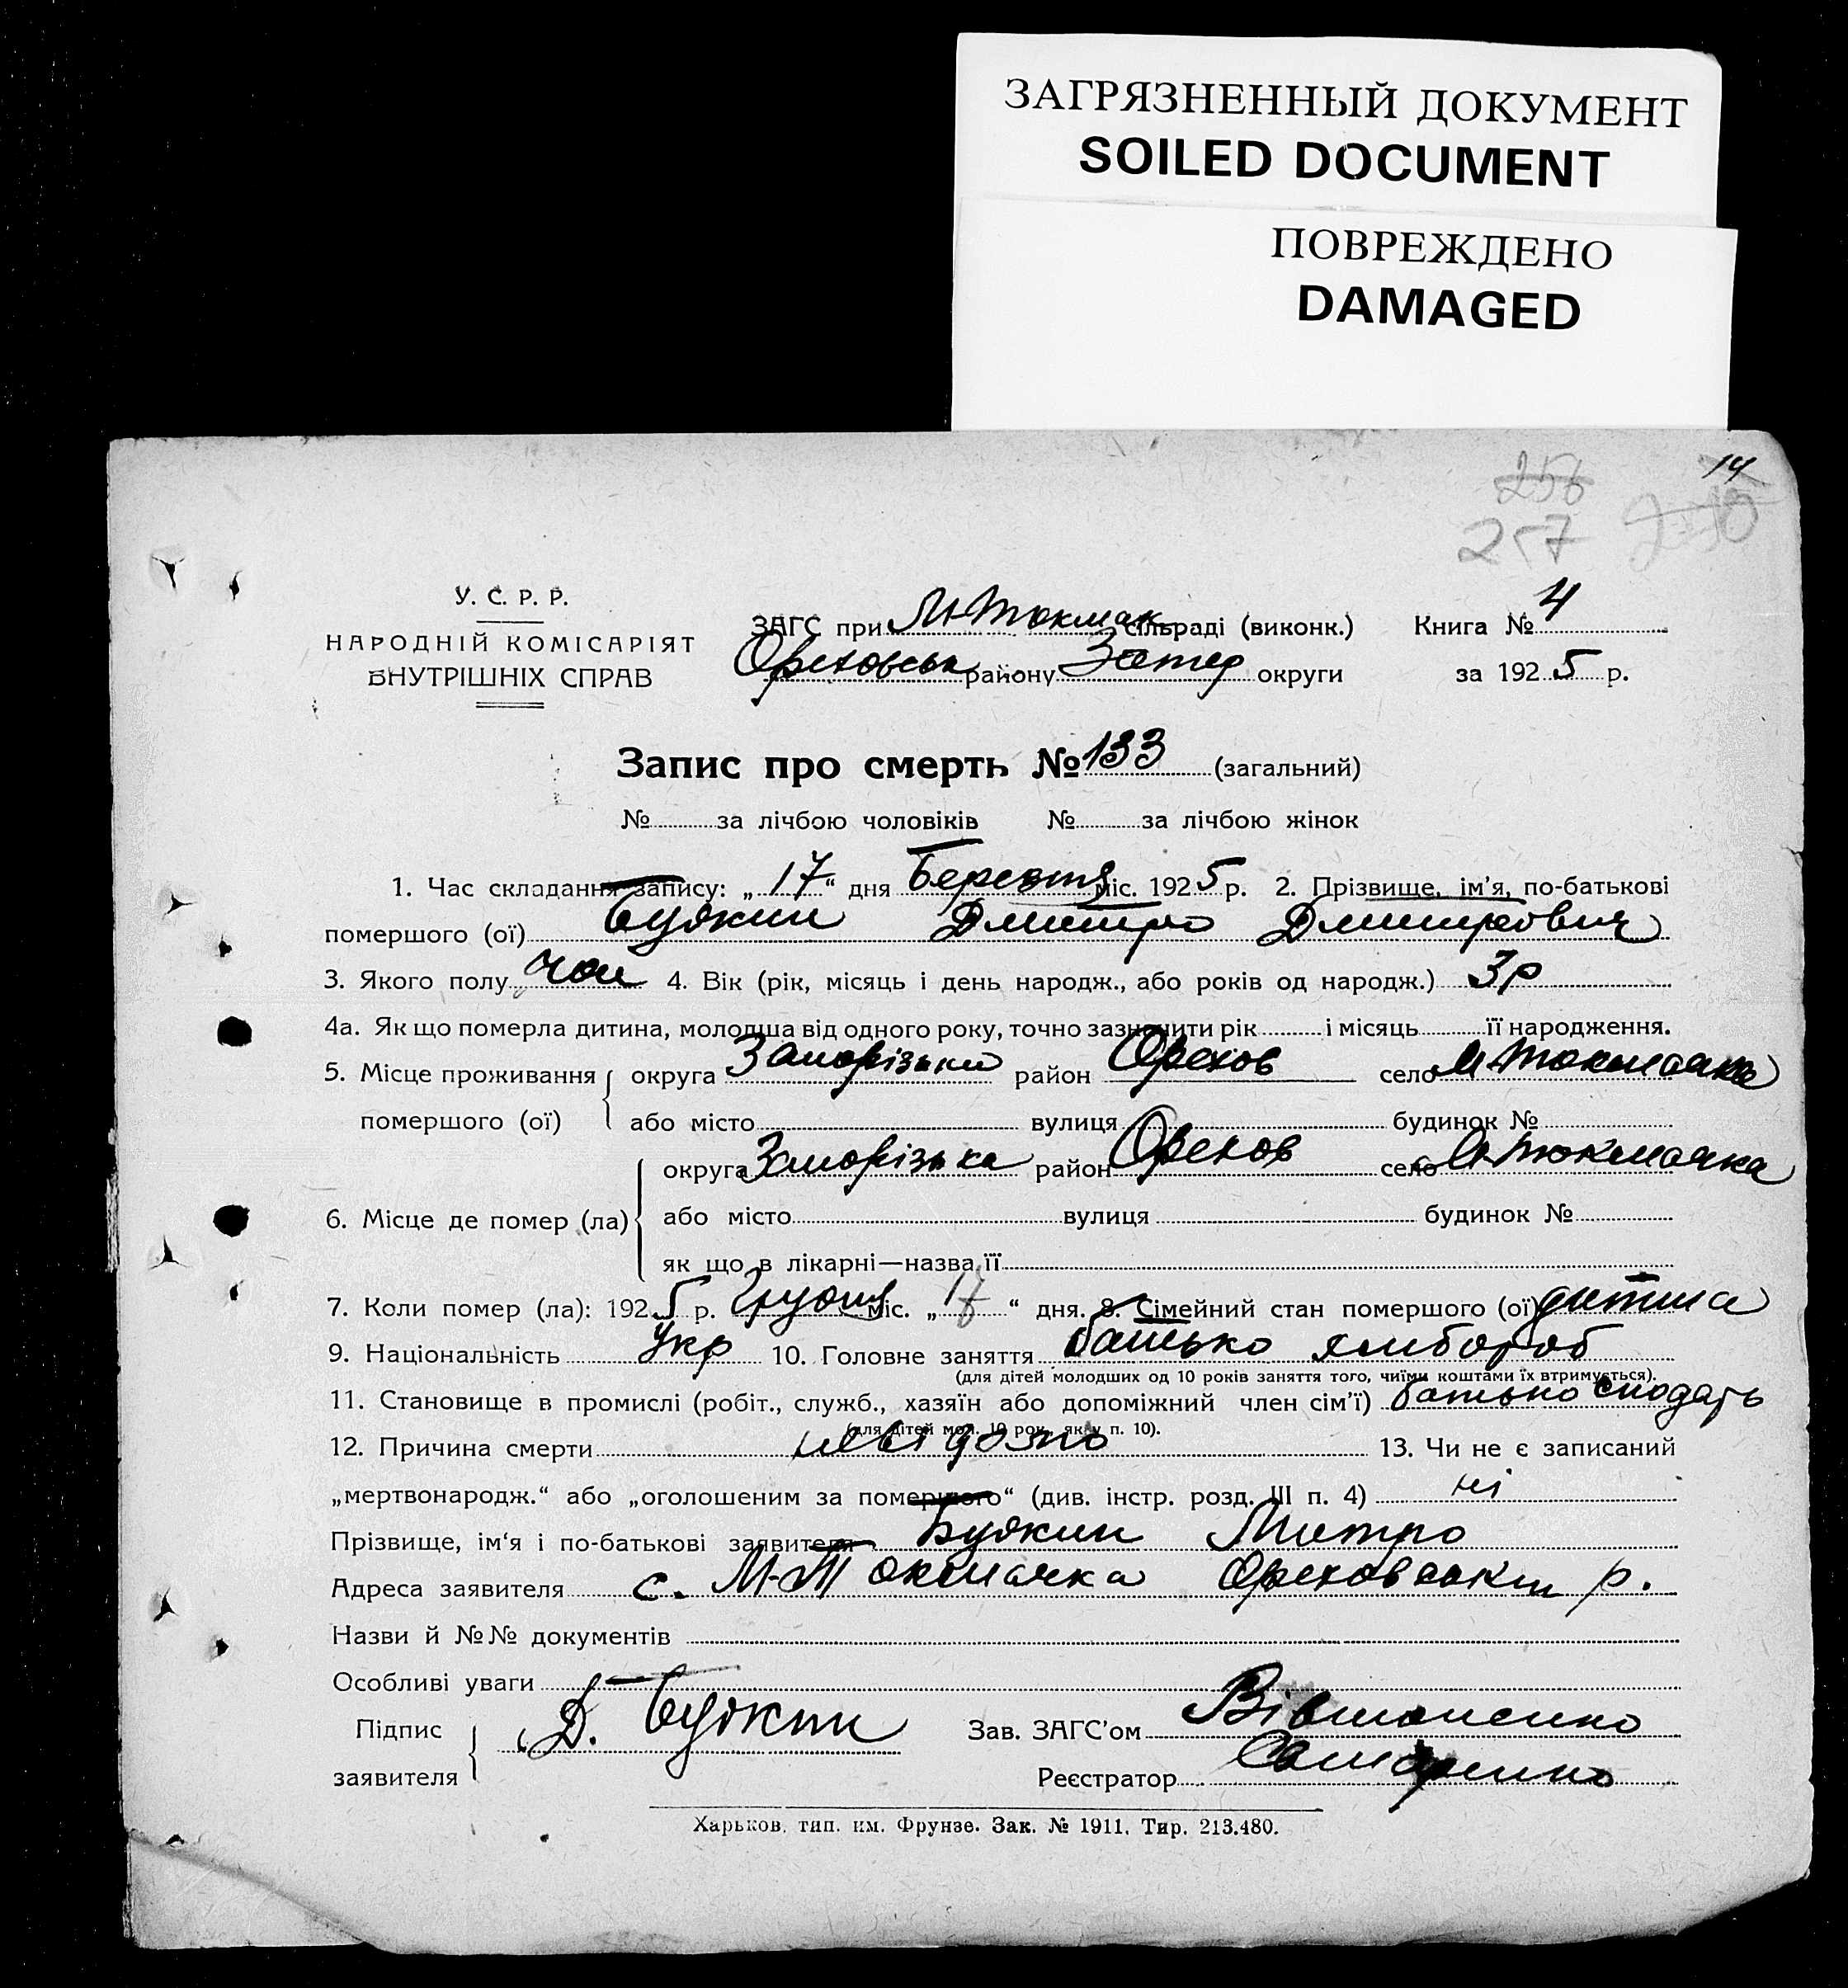 ЗАГРЯЗНЕННЫЙ ДОКУМЕНТ
SOILED DOCUMENT
ПОВРЕЖДЕНО
DAMAGED
14
256
257
У. С. Р. Р.
НАРОДНІЙ КОМІСАРІЯТ
ВНУТРІШНІХ СПРАВ
ЗАГС при М-Токмак сільраді (виконк.) Книга № 4
Ореховськ району округи за 1925 р.
Запис про смерть № 133 (загальний)
№ за лічбою чоловіків № за лічбою жінок
1. Час складання запису: „17“ дня Березня міс. 1925 р. 2. Прізвище, ім'я, по-батькові
помершого (ої) Будкин Дмитро Дмитрович
3. Якого полу чол 4. Вік (рік, місяць і день народж., або років од народж.) 3р
4а. Як що померла дитина, молодша від одного року, точно зазначити рік і місяць її народження.
5. Місце проживання округа Запорізька район Орехов село М-Токмачка
помершого (ої) або місто вулиця будинок №
округа Запорізька район Орехов село М-Токмачка
6. Місце де помер (ла) або місто вулиця будинок №
як що в лікарні—назва її
7. Коли помер (ла): 1925 р. Грудня міс. „17“ дня. 8. Сімейний стан помершого (ої) дитина
9. Національність Укр 10. Головне заняття батько хлибороб
(для дітей молодших од 10 років заняття того, чиїми коштами їх втримується).
11. Становище в промислі (робіт., служб., хазяїн або допоміжний член сім'ї) батько
(для дітей мол. 10 рок., як у п. 10).
12. Причина смерти невідомо 13. Чи не є записаний
„мертвонародж.“ або „оголошеним за помершого“ (див. інстр. розд. III п. 4) ні
Прізвище, ім'я і по-батькові заявителя Будкин Митро
Адреса заявителя с. М-Токмачка Ореховськи р.
Назви й №№ документів
Особливі уваги
Підпис Д. Будкин Зав. ЗАГС'ом
заявителя Реєстратор
Харьков, тип. им. Фрунзе. Зак. № 1911. Тир. 213.480.